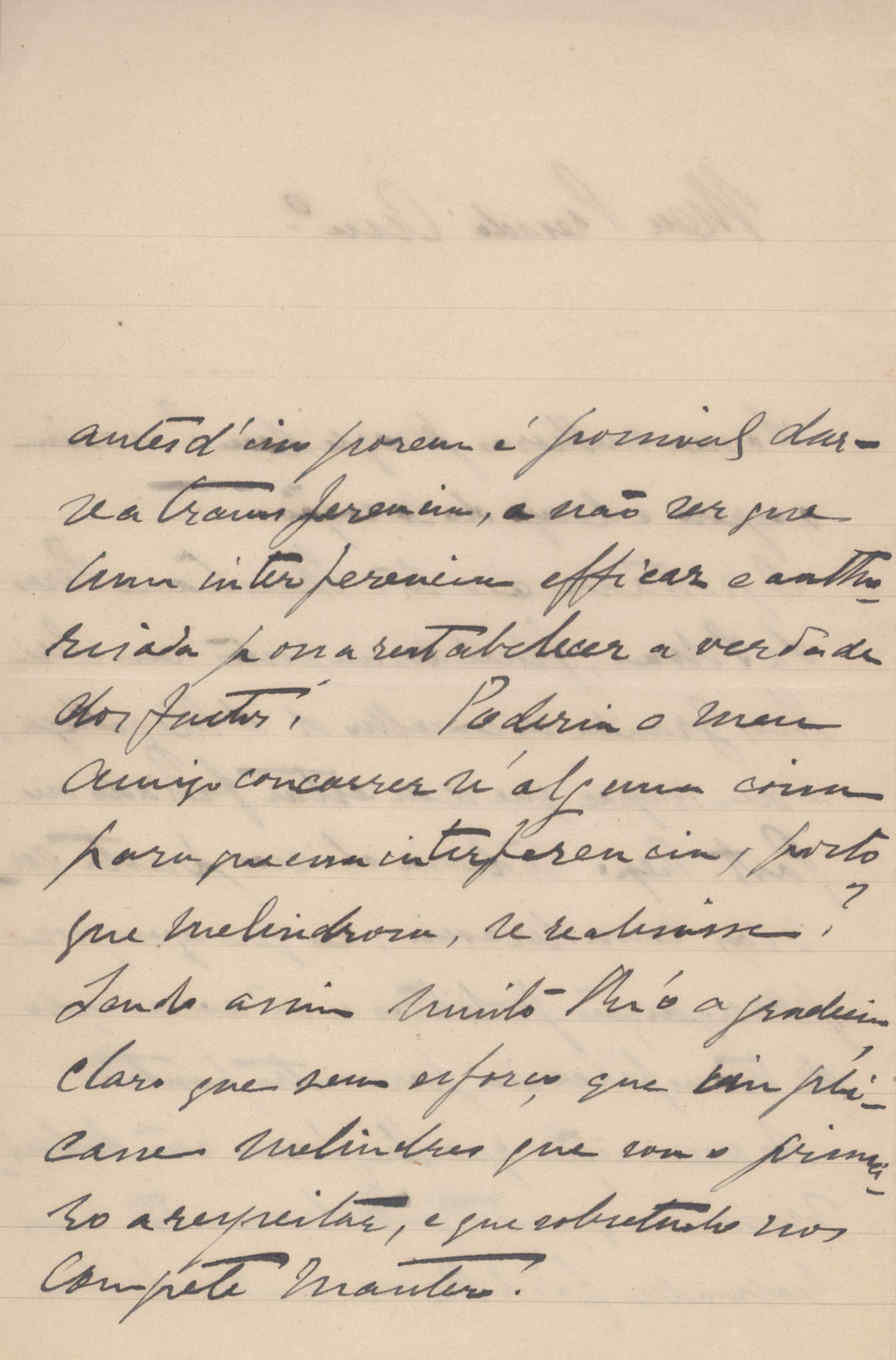 antes d'isso porem é possivel dar-
se a transferencia, a não ser que
uma interferencia efficaz e autho-
risada possa restabelecer a verdade
dos factos! Poderia o meu
amigo concorrer n'alguma coisa
para que essa interferencia, posto
que melindrosa, se realisasse?
Sendo assim muito lh'o agradecia,
claro que sem esforço que impli-
casse melindres que sou o primei-
ro a respeitar, e que sobretudo nos
compete manter.